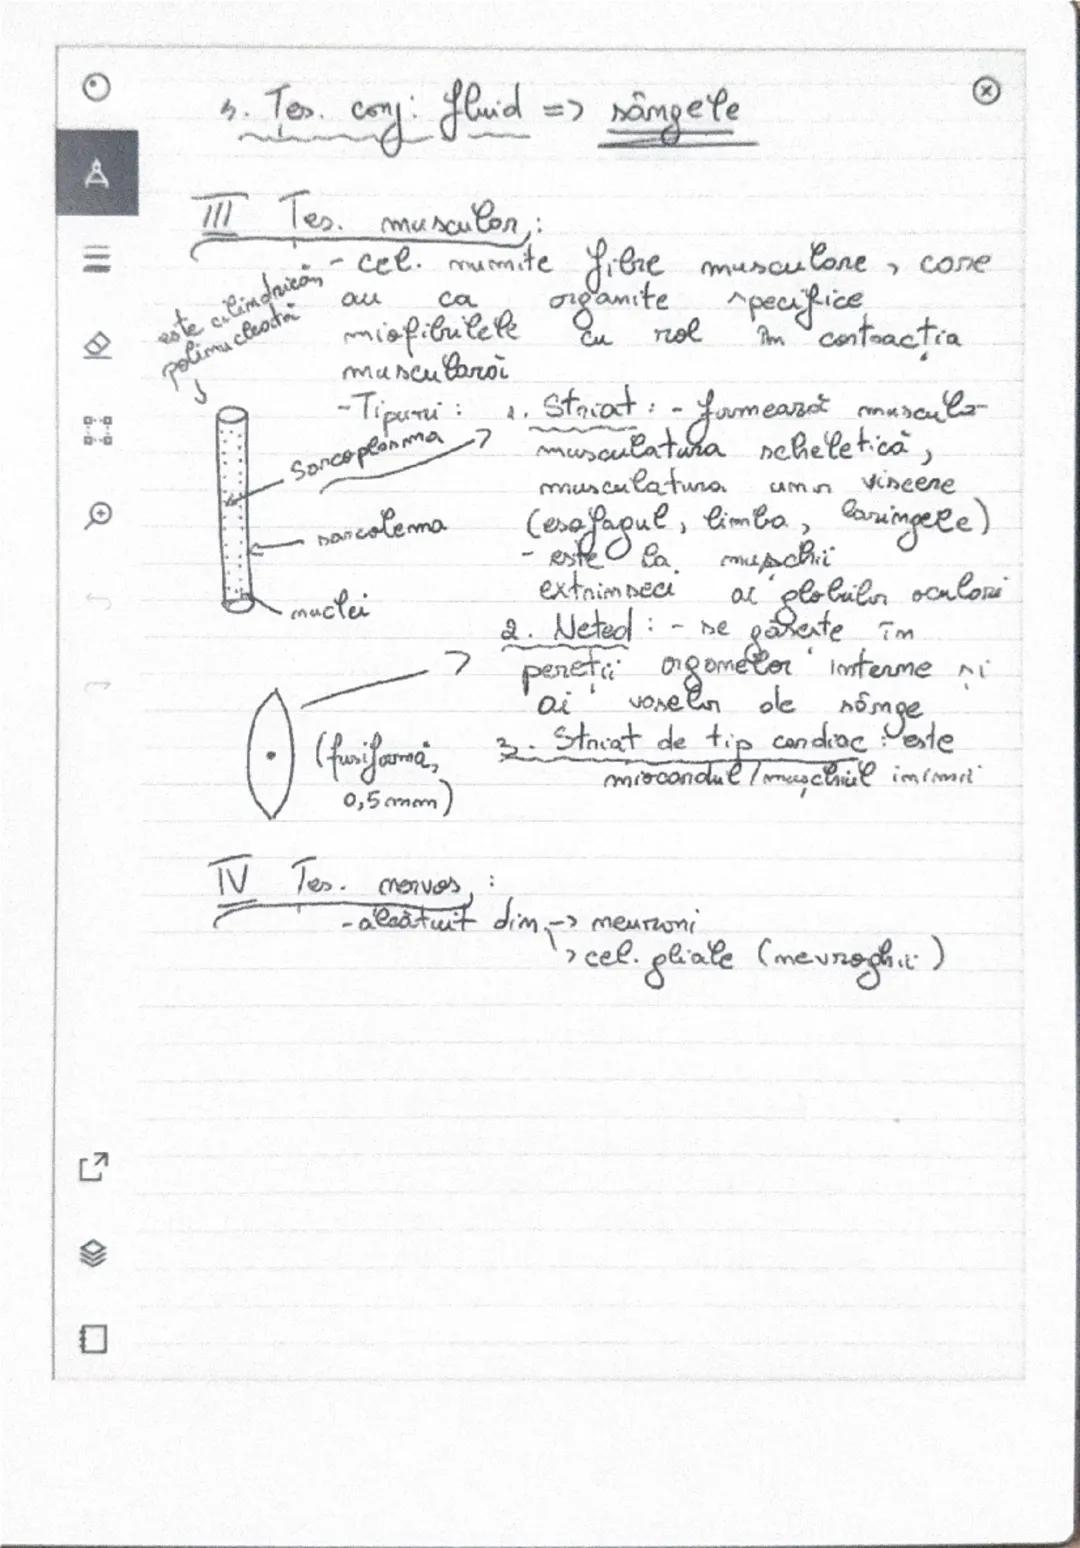 3. Tes. conj. fluid => sângele
III Tes. muscular:
- cel. numite fibre musculare, care
au ca organite specifice
miofibrilele cu rol în contracția
musculară
este cilindrică
polinucleată
- Tipuri: 1. Striat: - formează muscula-
musculatura scheletică,
musculatura unor viscere
(esofagul, limba, laringele)
- este la mușchii
extrinseci ai globilor oculari
Sarcoplasma
sarcolema
nuclei
2. Neted: - se găsește în
pereții organelor interne și
ai vaselor de sânge
3. Striat de tip cardiac: este
miocardul/mușchiul inimii
(fusiformă,
0,5 mm)
IV Tes. nervos:
- alcătuit din -> neuroni
> cel. gliale (nevroglii)